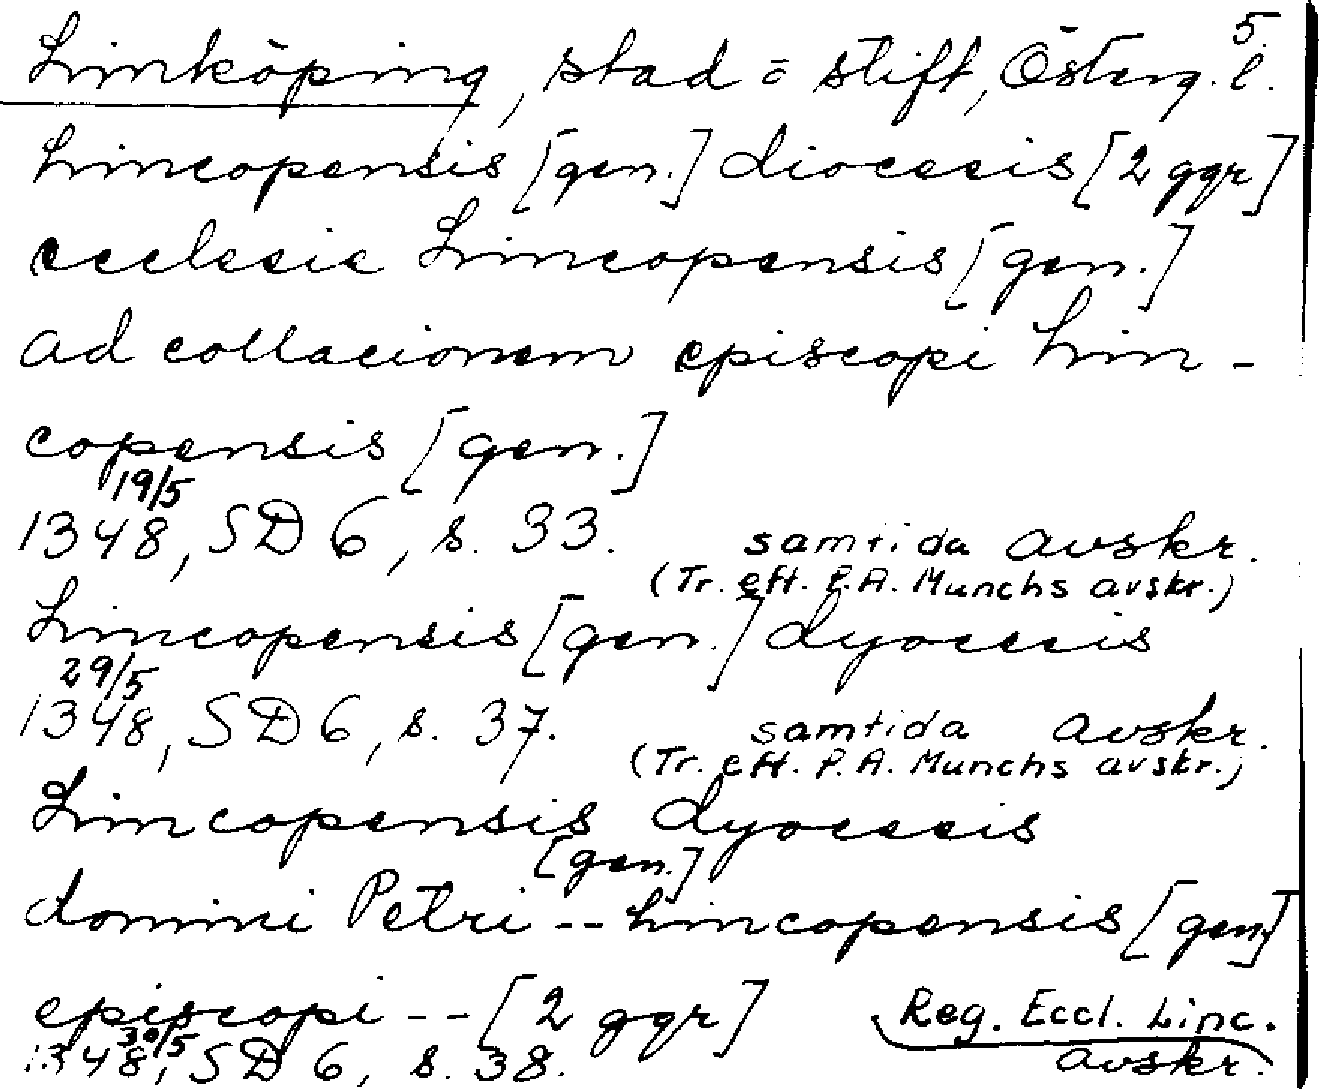 5.
Linköping, stad o stift, Österg. l.
Lincopensis [gen.] diocesis [2 ggr]
ecclesie Lincopensis [gen.]
ad collacionem episcopi Lin-
copensis [gen.]
19/5
1348, SD 6, s. 33. samtida avskr.
(Tr. eft. P.A. Munchs avskr.)
Lincopensis [gen.] dyocesis
29/5
1348, SD 6, s. 37. samtida avskr.
(Tr. eft. P.A. Munchs avskr.)
Lincopensis dyocesis
[gen.]
domini Petri -- Lincopensis [gen.]
episcopi -- [2 ggr] Reg. Eccl. Linc.
30/5
1348, SD 6, s. 38. avskr.